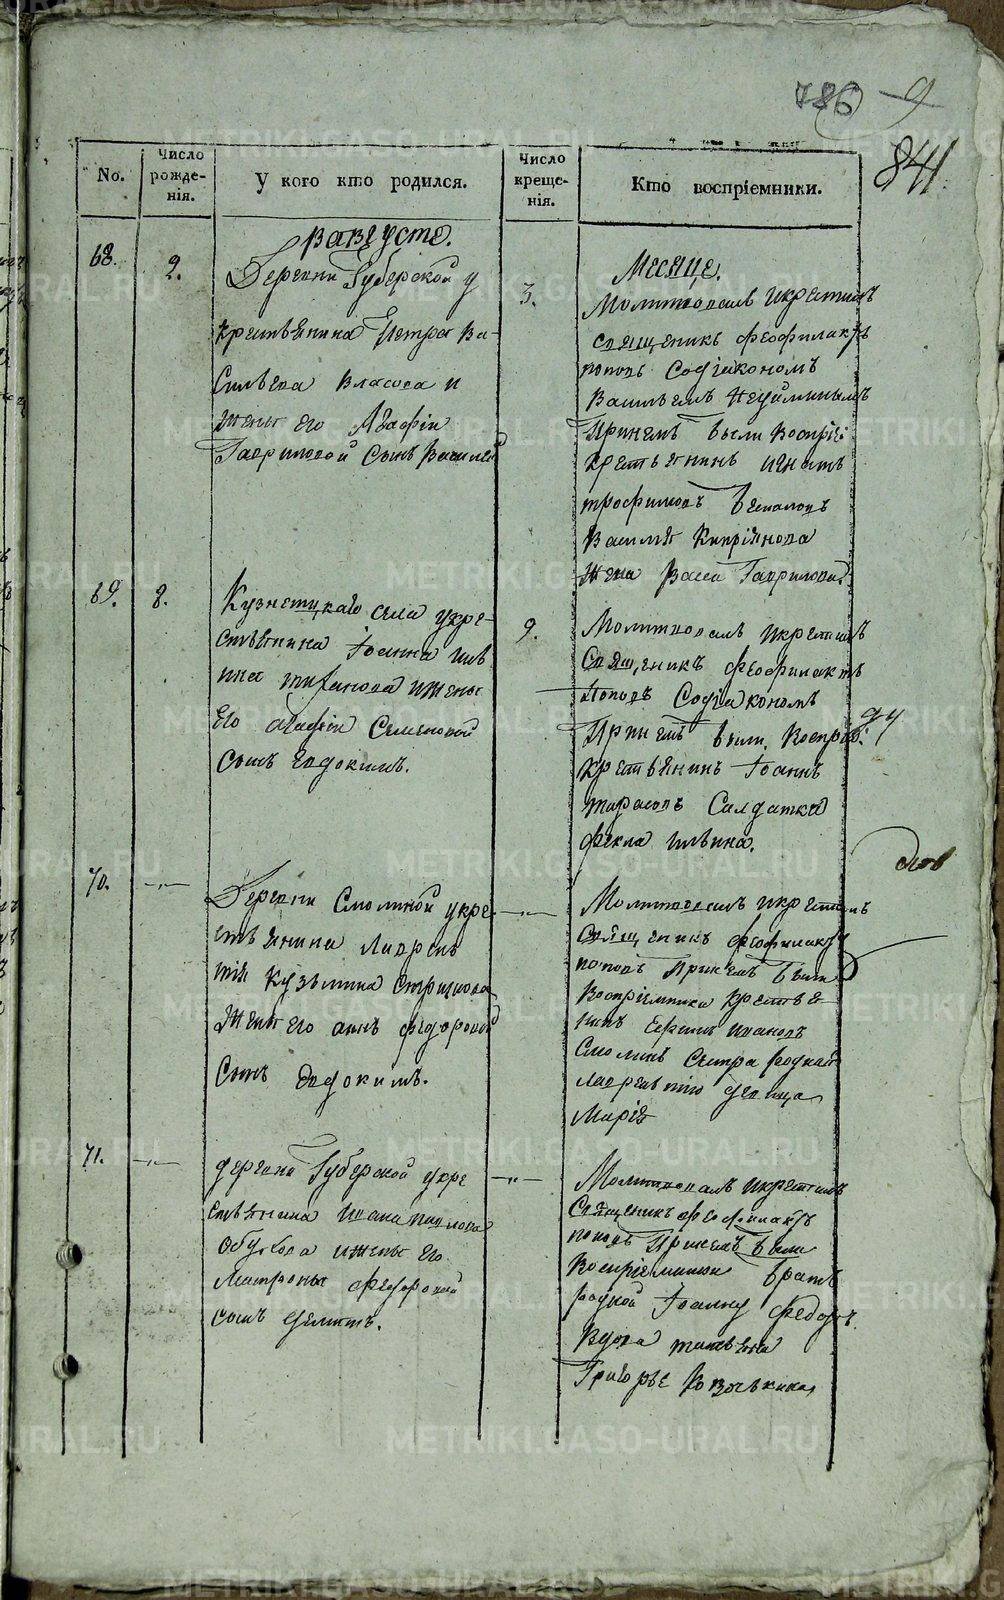 786
9
841
No.
Число рожде-нія.
У кого кто родился.
Число креще-нія.
Кто воспріемники.
Въ августе.
Месяце.
68.
2.
Деревни Губерской у
крестьянина Петра Ва-
сильева Власова и
жены его Агафіи
Гавриловой сынъ Василей
3.
Молитвовалъ икрестилъ
священикъ феофилактъ
поповъ Содіякономъ
Васильемъ Неуйминымъ
Приемъ были воспріе:
крестьянинъ игнатъ
трофимовъ
Василья Кипріянова
жена Васса Гаврилова.
69.
8.
Кузнетцкаго села укре-
стьянина Іоанна иль
ина тифанова ижены
Его агафіи Семеновой
сынъ евдокимъ.
9.
Молитвовалъ икрестилъ
Священикъ феофилактъ
Поповъ Содіакономъ
Приемъ были воспріе:
крестьянинъ Іоаннъ
тарасовъ Салдатка
фекла ильина.
70.
-„-
Деревни Смолиной укре-
стьянина Лаврен
тія Кузьмина
жены его анны федоровой
Сынъ Евдокимъ.
-„-
Молитвовалъ икрестилъ
священикъ феофилактъ
поповъ Приемъ были
воспріемники крестья-
нинъ Ефимъ ивановъ
Смолинъ сестра родная
лаврентію девица
Марія
71.
-„-
деревни Губерской укре
стьянина Ивана павлова
Обухова ижены его
Матроны федоровой
сынъ
-„-
Молитвовалъ икрестилъ
Священикъ феофилактъ
поповъ Приемъ были
воспріемники братъ
родной Іоанну Федоръ
вдова татьяна
Григорье